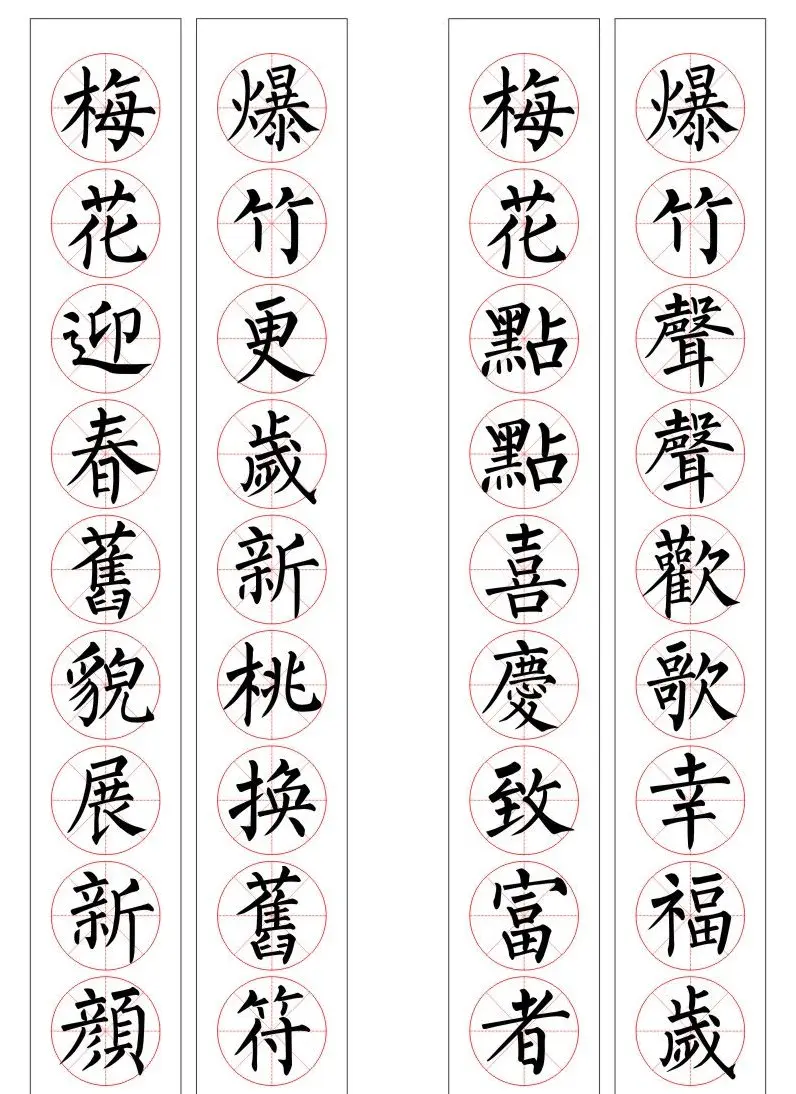 爆竹聲聲歡歌幸福歲
梅花點點喜慶致富者
爆竹更歲新桃換舊符
梅花迎春舊貌展新顏